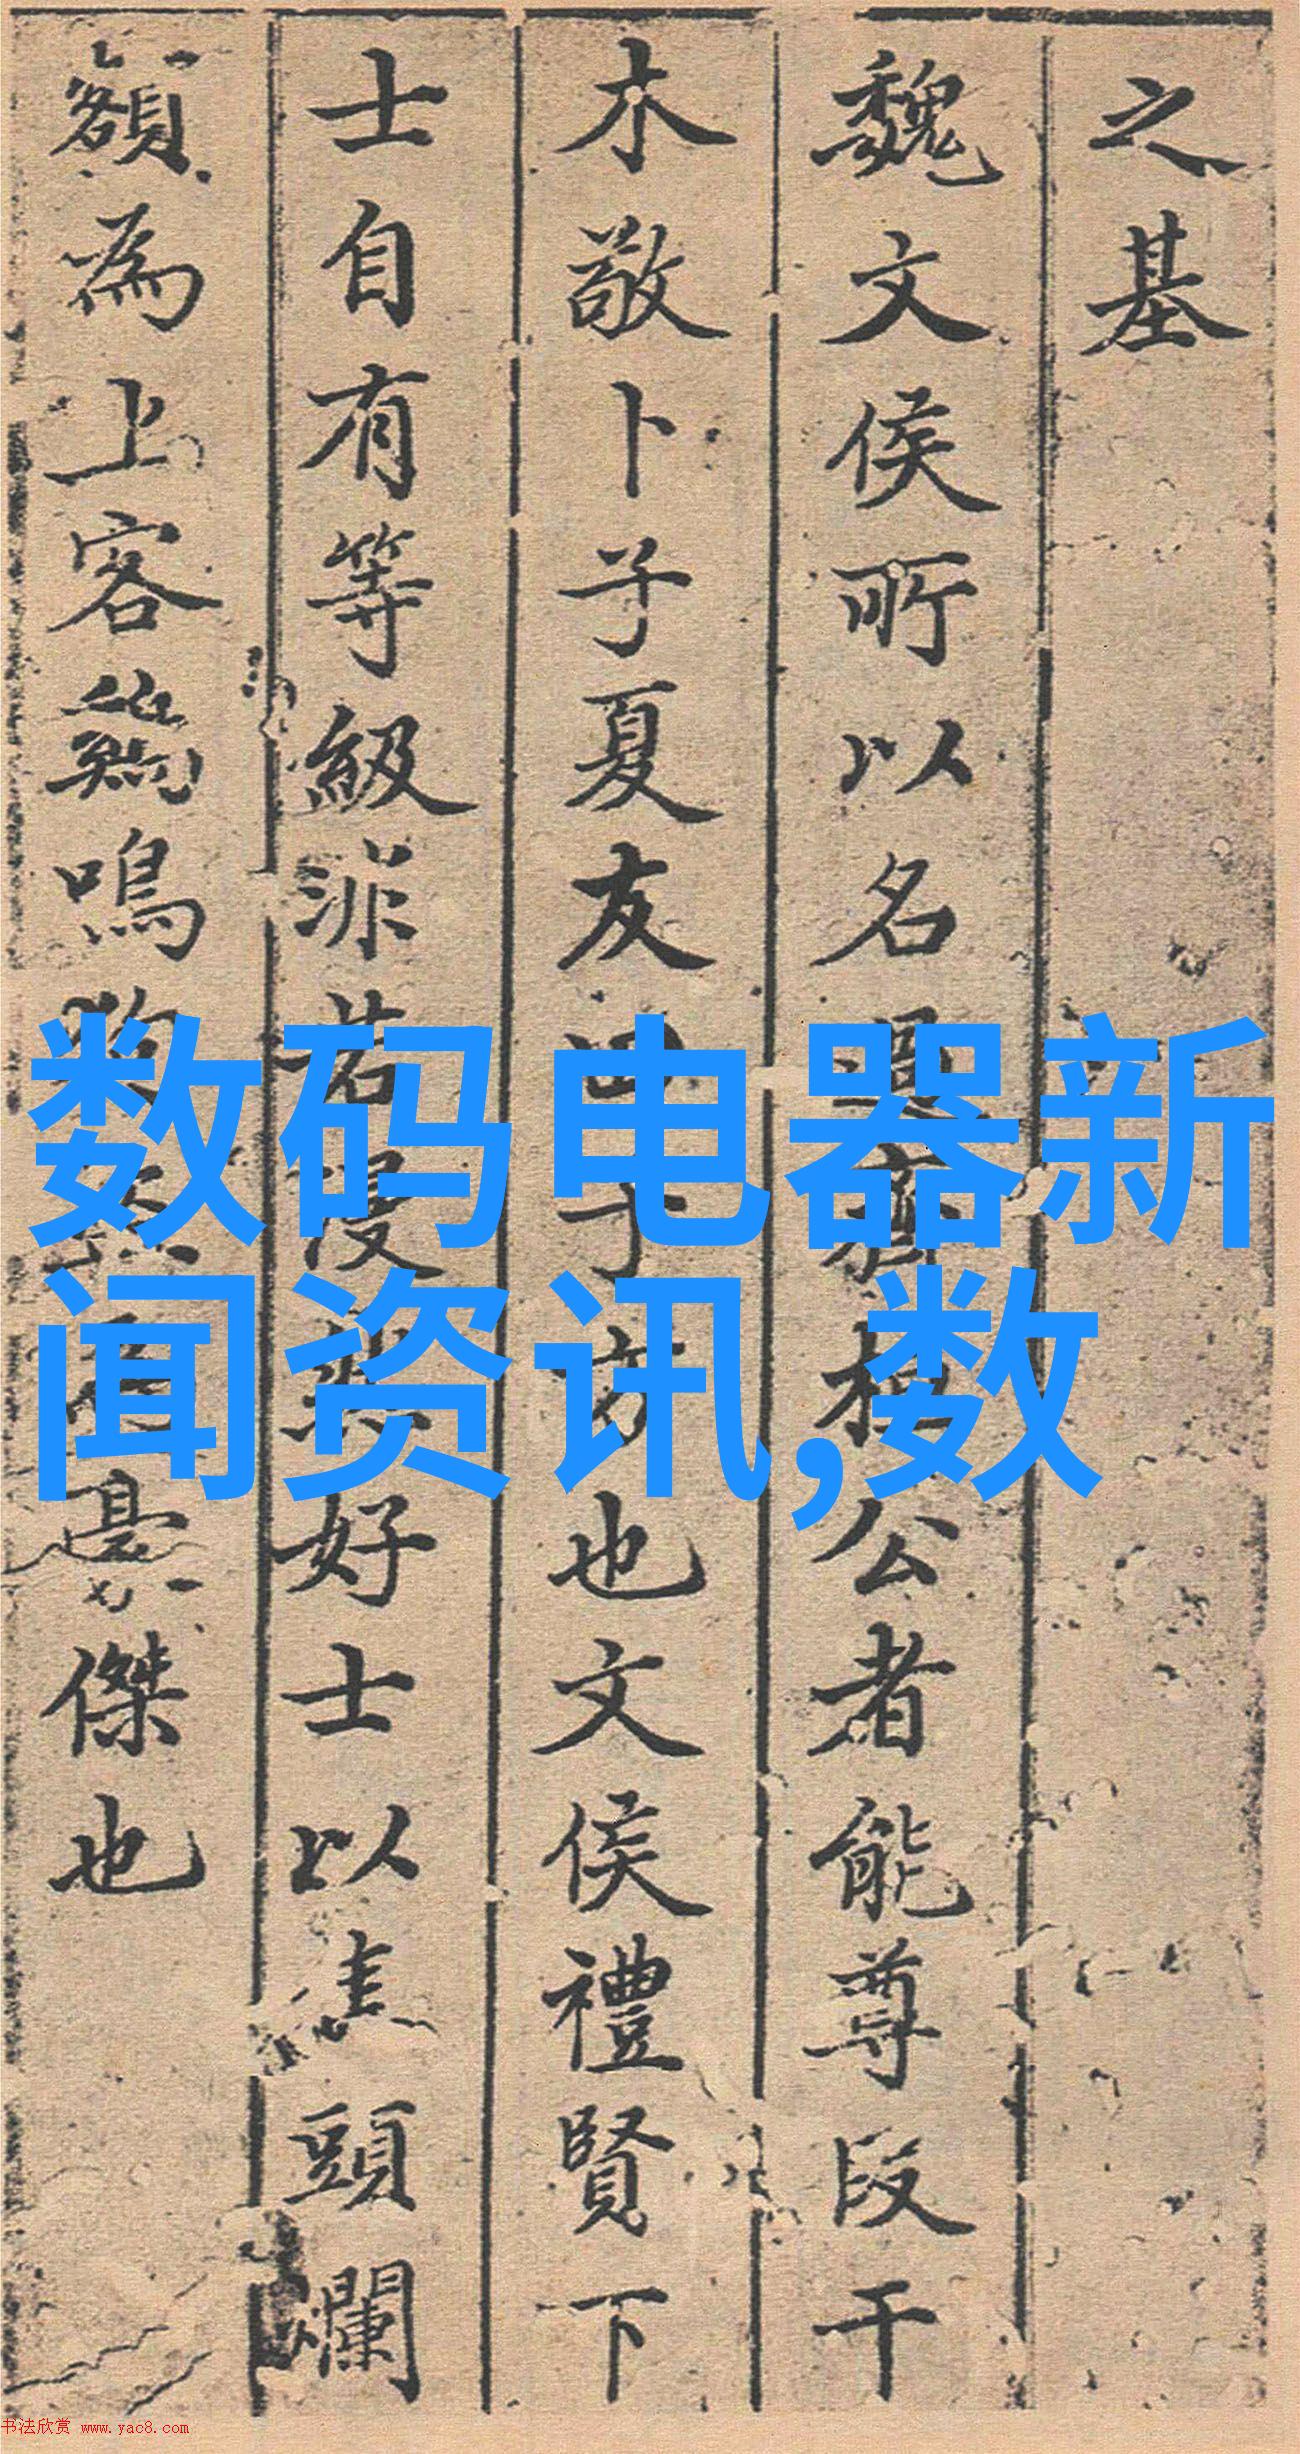 之基
魏文侯所以名過齊桓公者能尊段干
木敬卜子夏友田子方也文侯禮賢下
士自有等級非若漫然好士以焦頭爛
額為上客鷄鳴狗盜為豪傑也
数码电器新
闻资讯,数
书法欣赏 www.yac8.com